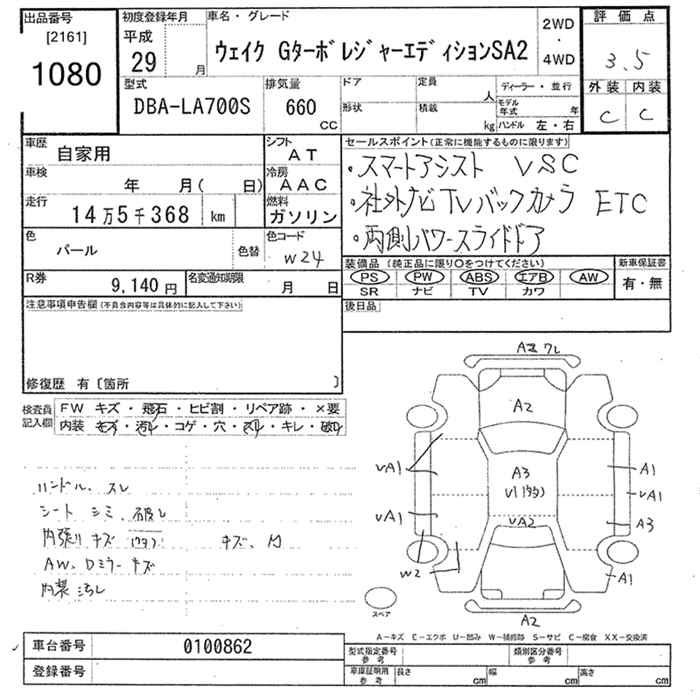 出品番号
[2161]
1080
初度登録年月
平成
29 月
車名・グレード
ウェイク GターボレジャーエディションSA2
2WD
・
4WD
評価点
3.5
外装 内装
C C
型式
DBA-LA700S
排気量
660
CC
ドア
形状
定員
人
積載
kg
ディーラー・並行
モデル年式 年
ハンドル 左・右
車歴
自家用
シフト
AT
車検
年 月( 日)
冷房
AAC
走行
14万5千368 km
燃料
ガソリン
色
パール
色替
色コード
W24
R券
9,140円
名変通知期限
月 日
セールスポイント(正常に機能するものに限ります)
・スマートアシスト VSC
・社外ナビTVバックカメラ ETC
・両側パワースライドドア
装備品(純正品に限り〇をつけてください)
PS PW ABS エアB AW
SR ナビ TV カワ
新車保証書
有・無
後日品
注意事項申告欄(不具合内容等は具体的に記入して下さい)
修復歴 有〔箇所 〕
検査員
記入欄
FW キズ・飛石・ヒビ割・リペア跡・×要
内装 キズ・汚れ・コゲ・穴・スレ・キレ・破れ
ハンドル、スレ
シート シミ、破レ
内張り キズ
キズ、
AW、Dミラー キズ
内装 汚れ
A2
A3
VA2
VA1
VA1
W2
A1
VA1
A3
A1
A2
スペア
A−キズ E−エクボ U−凹み W−補修跡 S−サビ C−腐食 XX−交換済
車台番号
0100862
登録番号
型式指定番号
参考
類別区分番号
参考
車庫証明用
参考
長さ cm
幅 cm
高さ cm